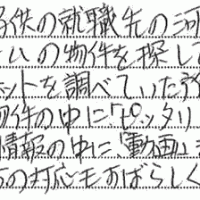 供の就職先の河
いの物件を探して
ットを調べていた所
物件の中に「ピッタリ
情報の中に、「動画」
の対応もすばらしく